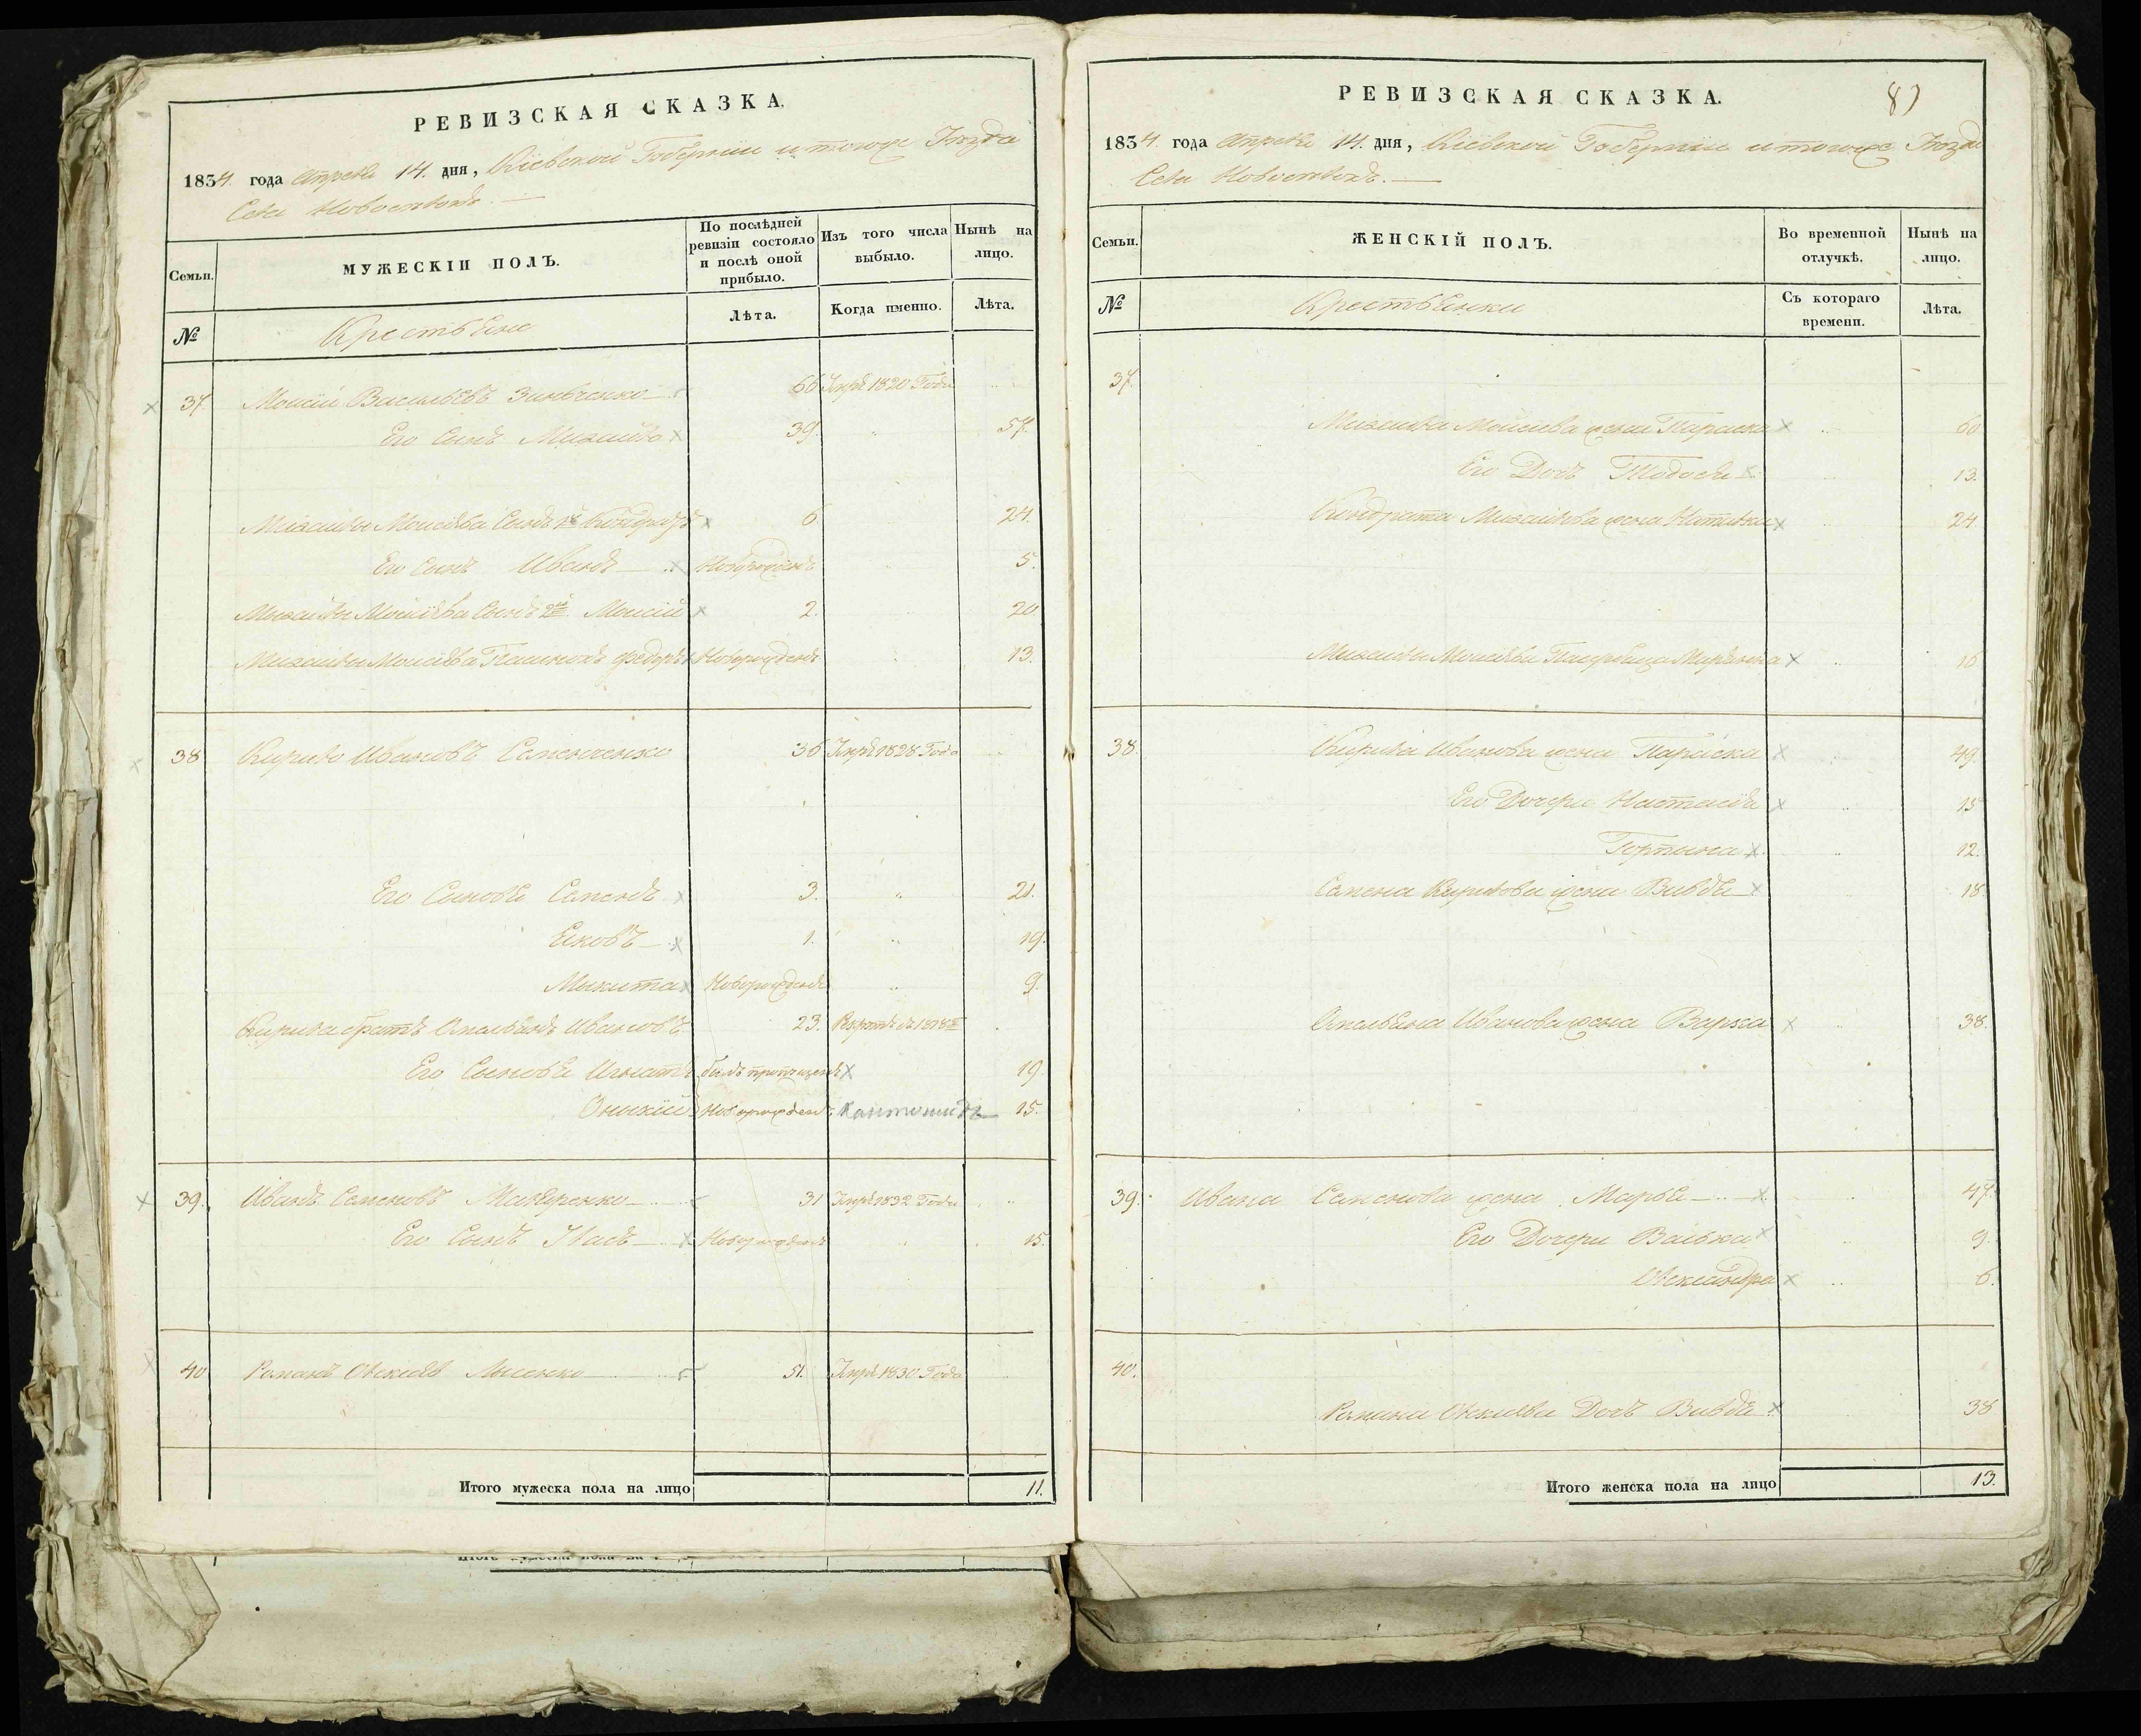 РЕВИЗСКАЯ СКАЗКА.
1834. года Апреля 14. дня, Кіевской Губерніи и тогожъ Уезда
Села
Семьи.
МУЖЕСКІЙ ПОЛЪ.
По послѣдней ревизіи состояло и послѣ оной прибыло.
Изъ того числа выбыло.
Нынѣ на лицо.
№
Крестьяне
Лѣта.
Когда именно.
Лѣта.
37. Моисій Васильевъ Зинченко 66 Умре 1820 Года
Его Сынъ Михайло 39. 57.
Михайлы Моисіева Сынъ 1й Кондратъ 6 24.
Его Сынъ Иванъ Новорожденъ 5.
Михайлы Моисіева Сынъ 2й Моисій 2. 20.
Михайлы Моисіева Федоръ Новорожденъ 13.
38 Кирило Ивановъ Семенченко 36 Умре 1828 Года
Его Сыновья Семенъ 3. 21.
Яковъ 1. 19.
Мыкита Новорожденъ 9.
Кирила братъ Ивановъ 23. 1818
Его Сыновья Игнатъ былъ пропущенъ 19.
Оныкій Новорожденъ 15.
39. Иванъ Семеновъ Макаренко 31 Умре 1832 Года
Его Сынъ Новорожденъ 15.
40 Романъ Лысенко 51. Умре 1830 Года
Итого мужеска пола на лицо 11.
РЕВИЗСКАЯ СКАЗКА.
1834. года Апреля 14. дня, Кіевской Губерніи и тогоже Уезда
Села
Семьи.
ЖЕНСКІЙ ПОЛЪ.
Во временной отлучкѣ.
Нынѣ на лицо.
№
Крестьянки
Съ котораго времени.
Лѣта.
37.
Михайла Моисіева жена Параска 60
Его Дочь Тодося 13.
Кондрата Михайлова жена Наталка 24
Михайлы Моисіева Марьяна 16
38. Кирила Иванова жена Параска 49.
Его Дочери Настасія 15
Горпына 12.
Семена Кирилова жена Вивдя 18
Иванова жена Варка 38.
39. Ивана Семенова жена Марья 47.
Его Дочери 9.
Олександра 6.
40.
Романа Дочь Вивдя 38
Итого женска пола на лицо 13.